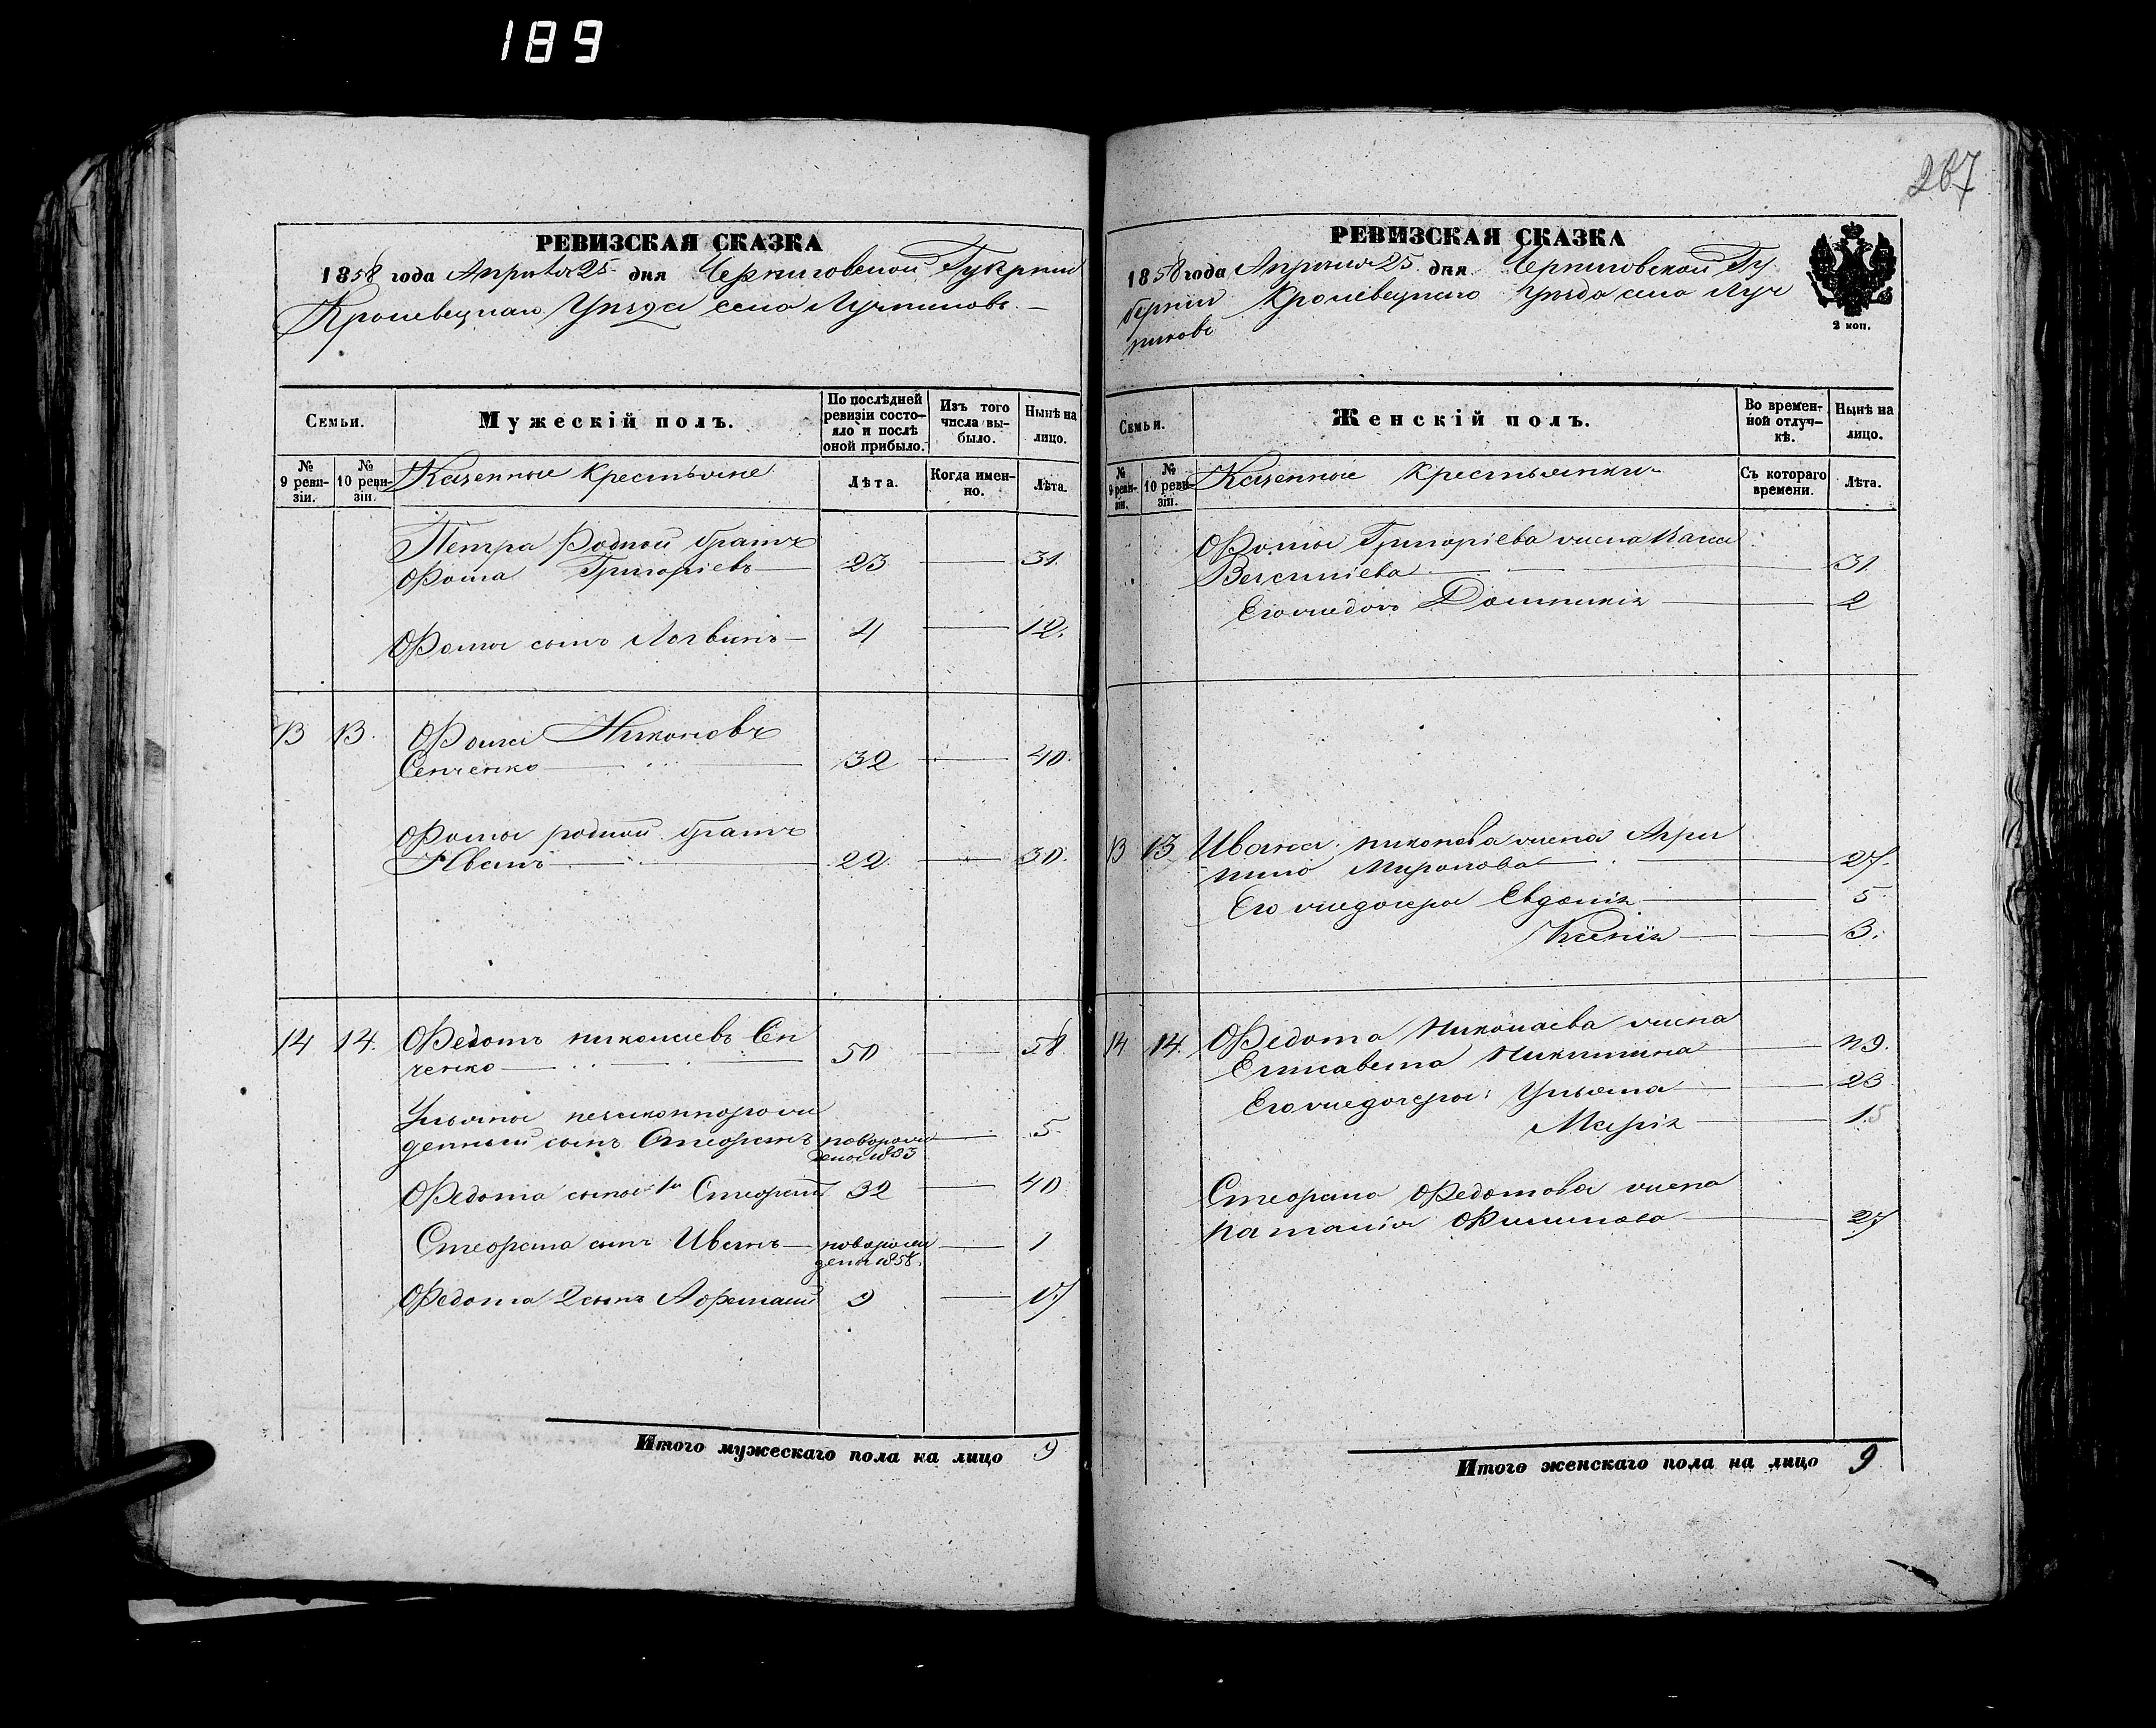 189
267
РЕВИЗСКАЯ СКАЗКА
1858 года Апреля 25 дня Черниговской Губернии
Кролевецкаго Уезда села Лучниковъ
Семьи.
Мужескій полъ.
По послѣдней ревизіи состояло и послѣ оной прибыло.
Изъ того числа выбыло.
Нынѣ на лицо.
№ 9 ревизіи.
№ 10 ревизіи.
Казенные крестьяне
Лѣта.
Когда именно.
Лѣта.
Петра Родной братъ
Фома Григоріевъ 23 31.
Фомы сынъ Логвинъ 4 12.
13 13. Фома Никоновъ
Сенченко 32 40.
Фомы родной братъ
Иванъ 22. 30.
14 14. Федотъ николаевъ Сен
ченко 50 58
Ульяны незаконнорож
денный сынъ Стефанъ новорож 5.
денъ 1853
Федота сыны 1й Стефанъ 32 40
Стефана сынъ Иванъ новорож 1
денъ 1858.
Федота 2 сынъ Афанасій 9 17
Итого мужескаго пола на лицо 9
РЕВИЗСКАЯ СКАЗКА
1858 года Апреля 25 дня Черниговской Гу
берніи Кролевецкаго Уезда села Луч
никовъ
2 коп.
Семьи.
Женскій полъ.
Во временной отлучкѣ.
Нынѣ на лицо.
№ 9 ревизіи.
№ 10 ревизіи.
Казенные крестьянки
Съ котораго времени.
Лѣта.
Фомы Григоріева жена
Василіева 31.
Его 2
13 13 Ивана никонова жена Агри
пина Миронова 27.
Его жедочери Евдокія 5
Ксенія 3.
14 14. Федота Николаева жена
Елисавета Никитина 49.
Его жедочери: Ульяна 23
Марія 15
Стефана Федотова жена
Наталія Филипова 27
Итого женскаго пола на лицо 9